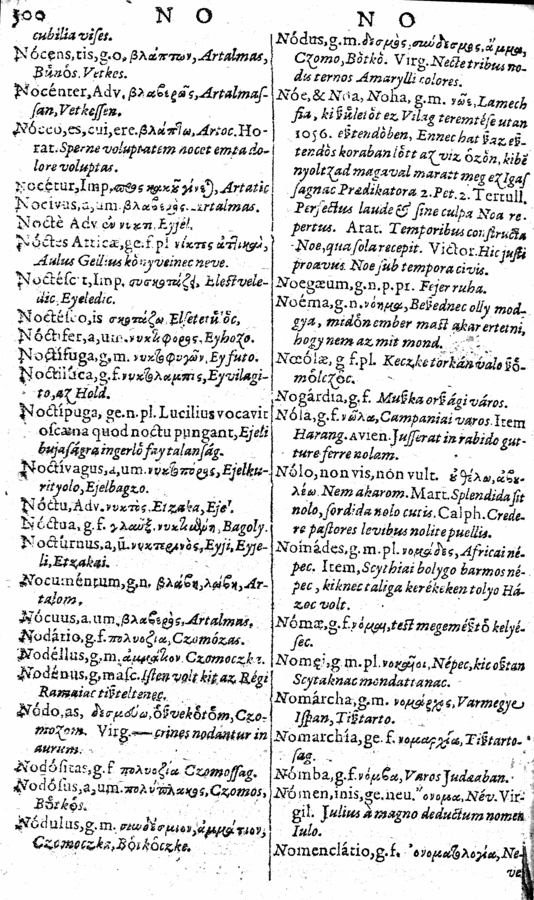 500 N O
cubilia viſes.
Nócens, tis, g.o. βλάπτων, Artalmas,
Bűnős. Vetkes.
Nocénter, Adv. βλαβερῶς, Artalmaſ-
ſan, Vetkeſſen.
Nóceo, es, cui, ere. βλάπτω, Artoc. Ho-
rat. Sperne voluptatem nocet emta do-
lore voluptas.
Nocétur, Imp, Artatic
Nocivus, a, um. βλαβερὸς. Artalmas.
Noctè Adv Eyjel.
Nóctes Atticæ, ge. f. pl
Aulus Gellius könyveinec neve.
Noctéſcit, Imp. Eleſtvele-
dic, Eyeledic.
Noctéſco, is
Nóctifer, a, um. νυκτιφορος. Eyhozo.
Noctífuga, g.m. Ey futo.
Noctilúca, g.f. Ey vilagi-
to, az Hold.
Noctípuga, ge. n. pl. Lucilius vocavit
oſcæna quod noctu pungant, Ejeli
bujaſágra ingerlő fay talanſág.
Noctívagus, a, um. Ejelku-
rityolo, Ejelbagzo.
Nóctu, Adv. Etzaka, Eje'.
Nóctua, g.f. γλαὺξ. Bagoly.
Noctúrnus, a, ũ. νυκτερινὸς, Eyji, Eyje-
li, Etzakai.
Nocuméntum, g.n. βλάβη, λώβη, Ar-
talom.
Nócuus, a. um. βλαβερὸς, Artalmas.
Nodátio, g.f. πολυοζία, Czomózas.
Nodéllus, g.m. Czomoczka.
Nodénus, g. maſc. Iſten volt kit az Régi
Ramaiac tiſteltenec.
Nódo, as, Czo-
mozom. Virg.— crines nodantur in
aurum.
Nodóſitas, g.f πολυοζία Czomoſſag.
Nodóſus, a, um. Czomos,
Bötkös.
Nódulus, g.m. Czomoczka, Bötköczke.
N O
Nódus, g.m. δεσμὸς, σύνδεσμος, ἅμμα,
Czomo, Bötkö. Virg. Necte tribus no-
dis ternos Amarylli colores.
Nóe, & Nóa, Noha, g.m. νῶε, Lamech
fia, ki ſzületöt ez Vilag teremtéſe utan
1056. eſztendöben, Ennec hat ſzaz eſz-
tendös koraban lött az viz özön, kibé
nyoltzad magaval maratt meg ez Igaſ
ſagnac Prædikatora 2. Pet. 2. Tertull.
Perfectus laude & ſine culpa Noa re-
pertus. Arat. Temporibus conſtructa
Noe, qua ſola recepit. Victor. Hic juſti
proavus Noe ſub tempora civis.
Noegæum, g.n. p. pr. Fejer ruha.
Noéma, g.n. νόημα, Beſzednec olly mod-
gya, midőn ember maſt akar erteini,
hogy nem az mit mond.
Nœólæ, g f.pl. Keczke torkán valo
Nogárdia, g.f. Muſzka orſzági város.
Nóla, g.f. νῶλα, Campaniai varos. Item
Harang. Avien. Juſſerat in rabido gut-
ture ferre nolam.
Nólo, non vis, nón vult.
Nem akarom. Mart. Splendida ſit
nolo, ſordida nolo cutis. Calph. Crede-
re paſtores levibus nolite puellis.
Nomádes, g.m. pl. νομάδες, Africai né-
pec. Item, Scythiai bolygo barmos né-
pec, kiknec taliga kerékeken tolyo Há-
zoc volt.
Nómæ, g.f. νόμαι, teſt megeméſztő kelyé-
ſec.
Nomęi, g m. pl. Népec, kic oſztan
Scytaknac mondattanac.
Nomárcha, g.m. νομάρχης, Varmegye
Iſpan, Tiſztarto.
Nomarchía, ge. f. νομαρχία, Tiſztarto-
ſag.
Nómba, g.f. νόμβα, Varos Judæaban.
Nómen, inis, ge. neu. ὄνομα, Név. Vir-
gil. Julius à magno deductum nomen
Iulo.
Nomenclátio, g.f. ὀνοματολογία, Ne-
ve